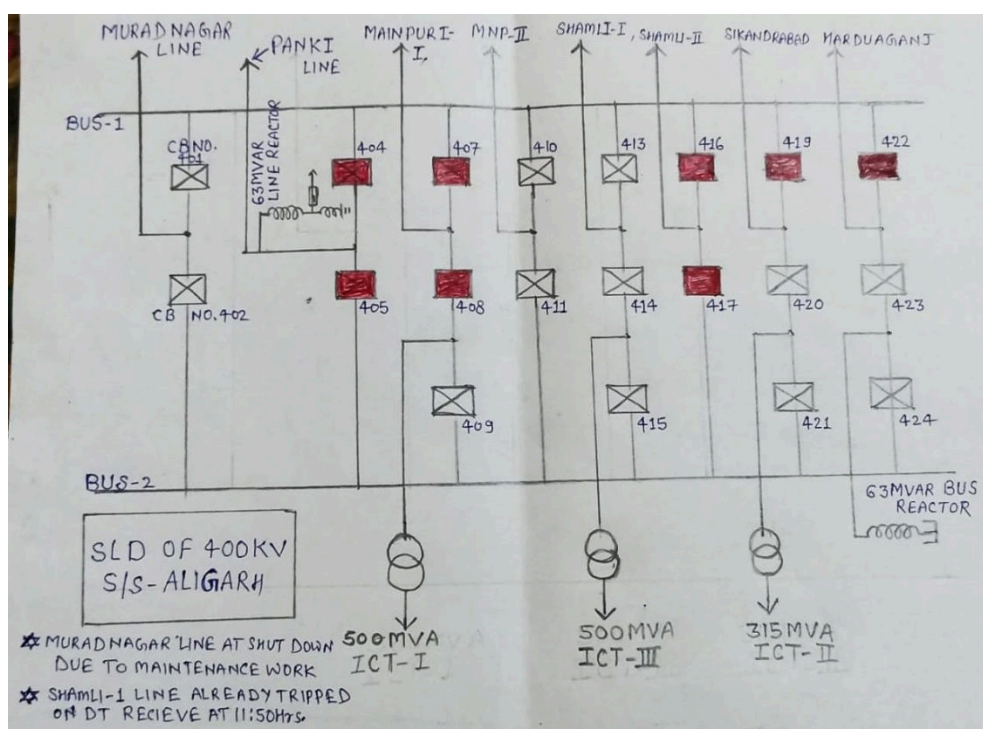 MURADNAGAR
LINE
PANKI
LINE
MAINPURI-
I,
MNP-II
SHAMLI-I,
SHAMLI-II
SIKANDRABAD
HARDUAGANJ
BUS-1
CB NO.
401
63MVAR
LINE REACTOR
404
407
410
413
416
419
422
CB NO.402
405
408
411
414
417
420
423
409
415
421
424
BUS-2
63MVAR BUS
REACTOR
SLD OF 400KV
S/S-ALIGARH
500MVA
ICT-I
500MVA
ICT-III
315MVA
ICT-II
MURADNAGAR LINE AT SHUT DOWN
DUE TO MAINTENANCE WORK
SHAMLI-1 LINE ALREADY TRIPPED
ON DT RECIEVE AT 11:50Hrs.